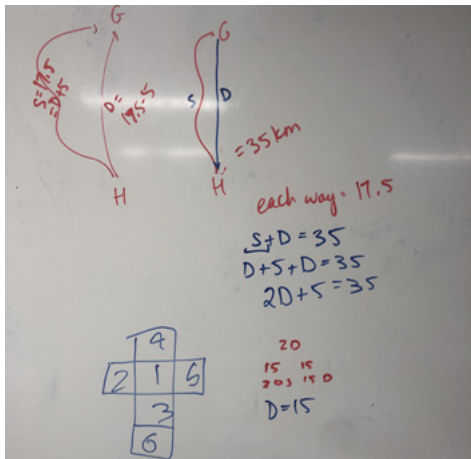 G
S=17.5
=D+5
D=
17.5-5
H
G
S
D
H
=35km
each way = 17.5
S+D=35
D+5+D=35
2D+5=35
4
2 1 5
3
6
20
15 15
20s 15D
D=15